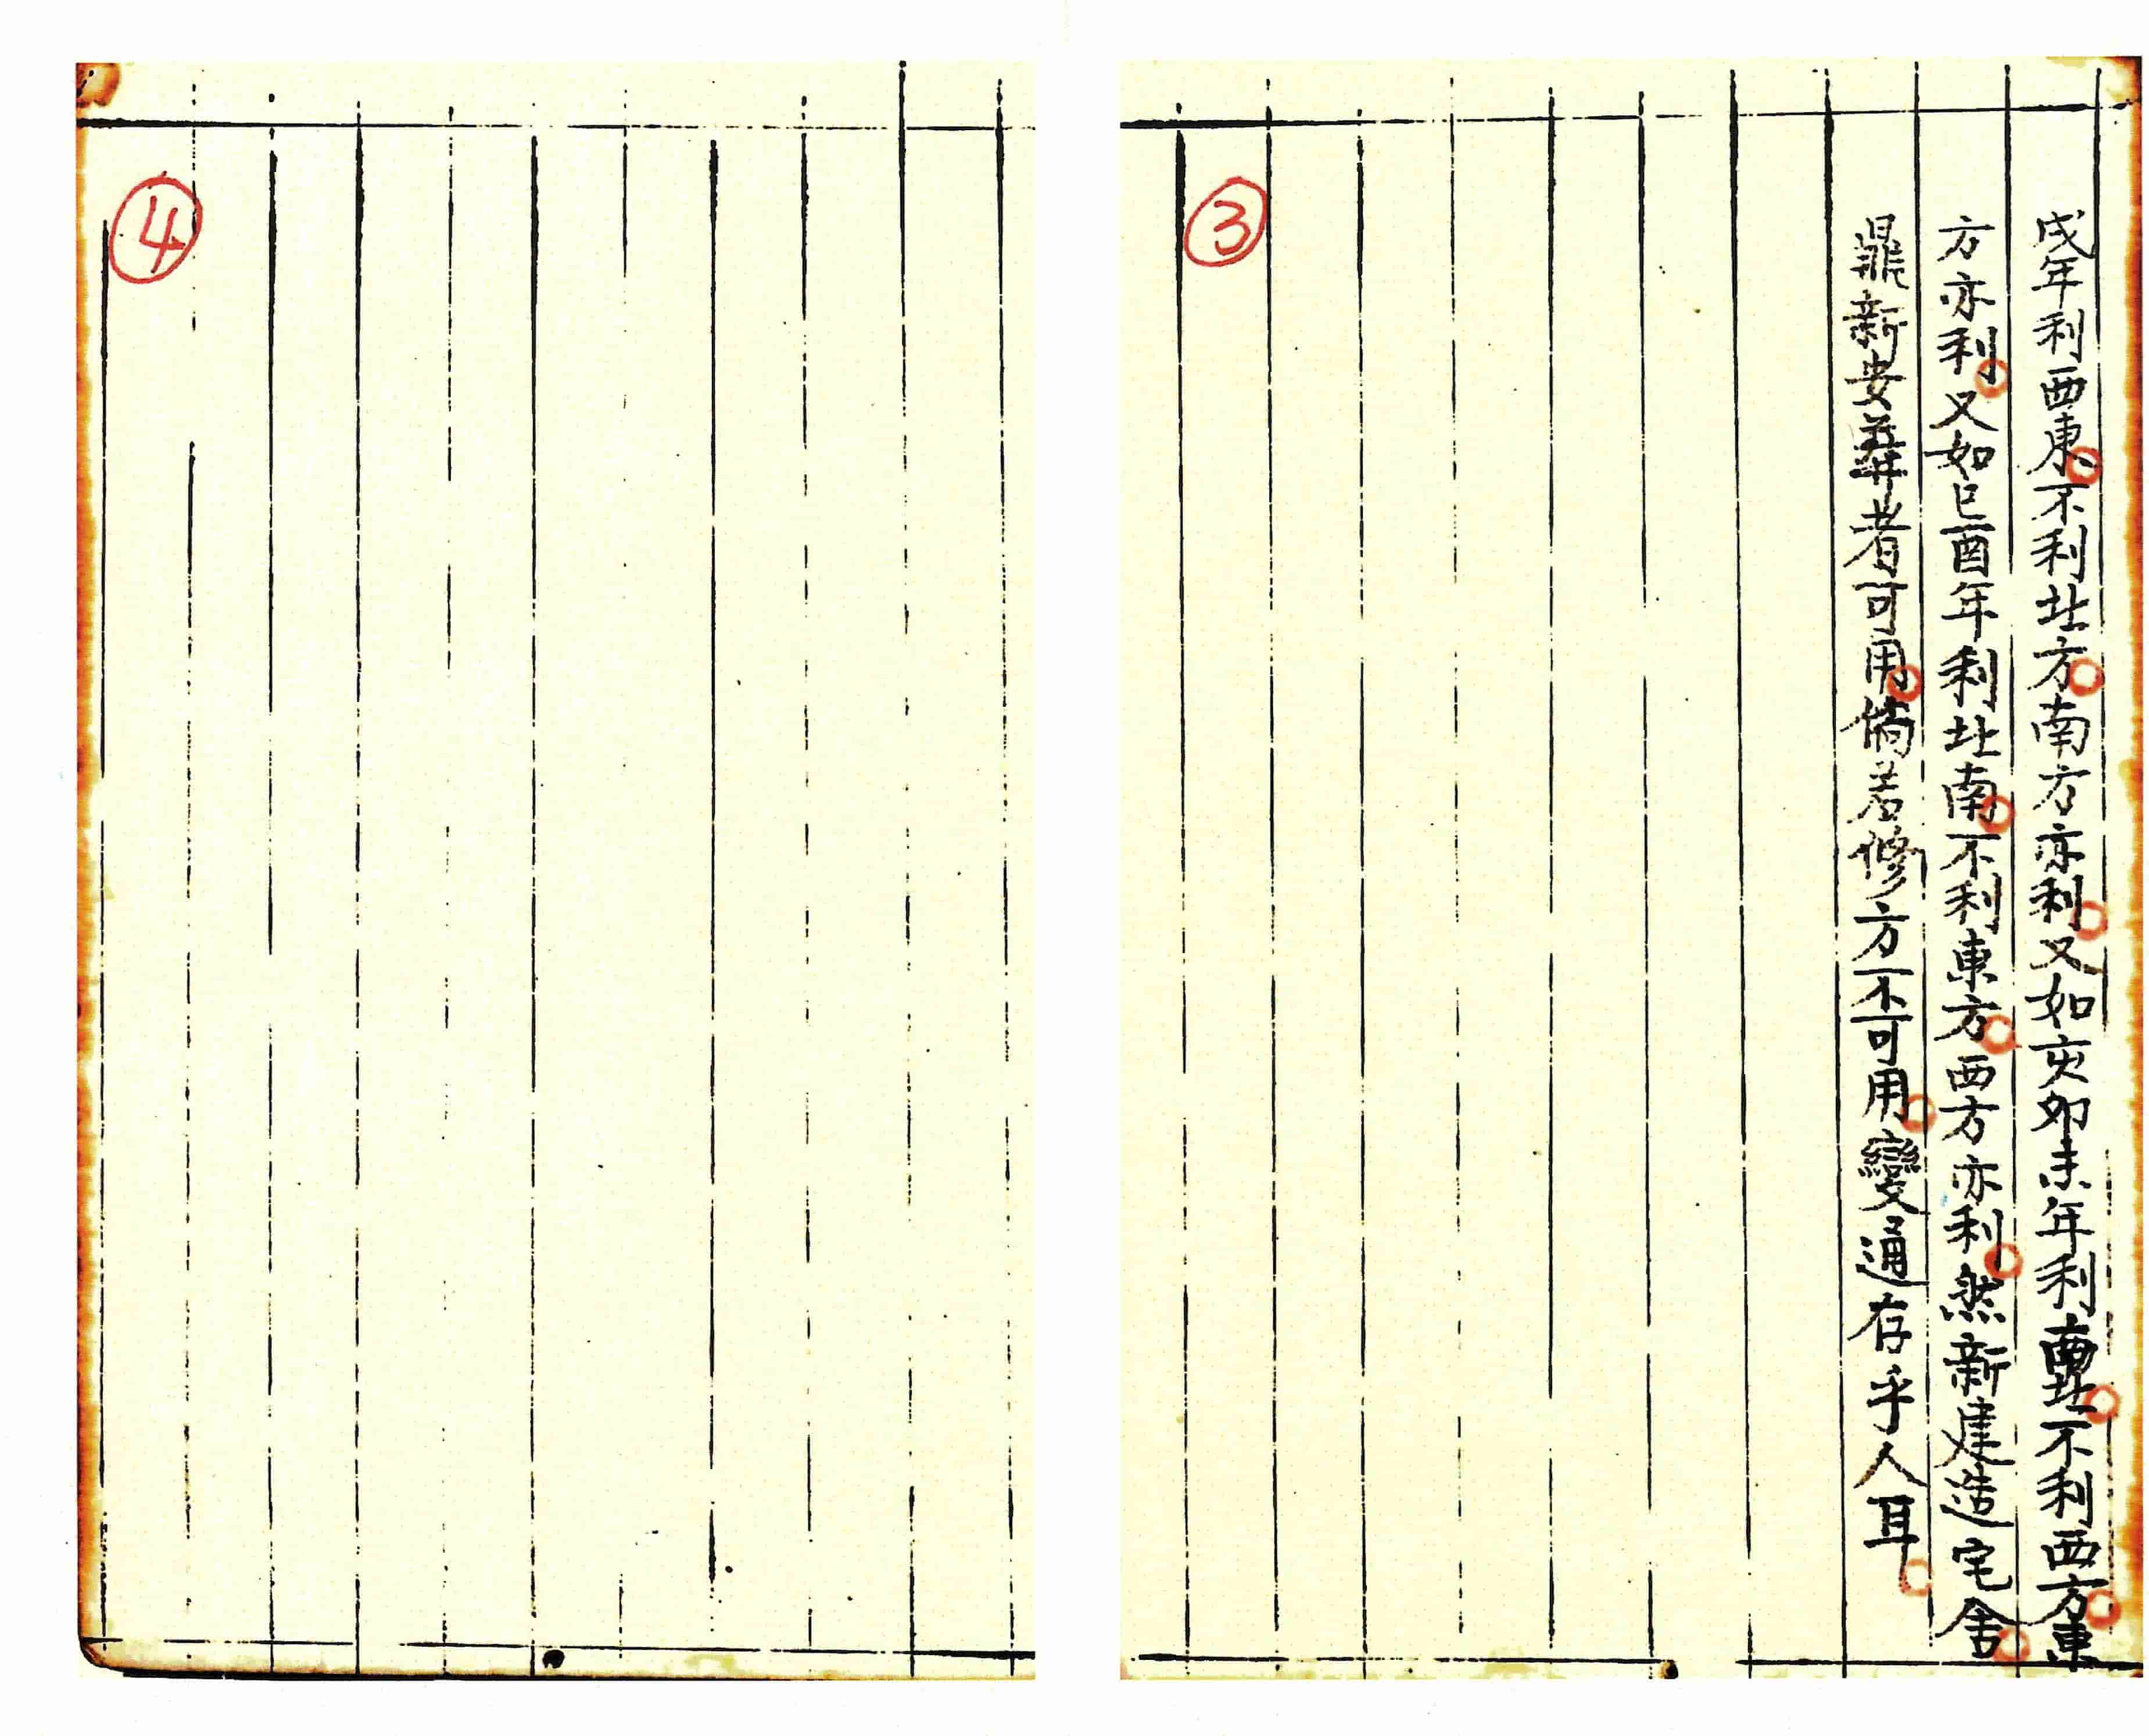 戌年利西東不利北方南方亦利又如亥卯未年利南北不利西方東
方亦利又如巳酉年利北南不利東方西方亦利然新建造宅舍
鼎新安葬者可用倘若修方不可用變通存乎人耳
③
④